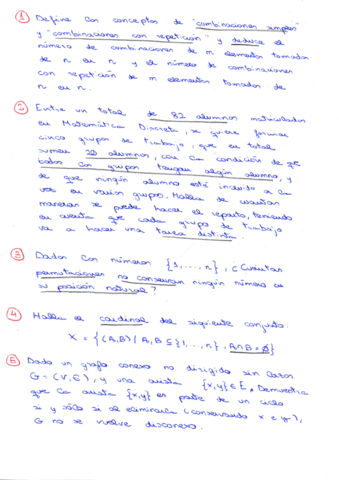 ① Define los conceptos de "combinaciones simples"
y "combinaciones con repetición" y deduce el
número de combinaciones de m elementos tomados
de n en n y el número de combinaciones
con repetición de m elementos tomados de
n en n.
② Entre un total de 82 alumnos matriculados
en Matemática Discreta, se quiere formar
cinco grupos de trabajo, que en total
sumen 20 alumnos, con la condición de que
todos los grupos tengan algún alumno, y
de que ningún alumno esté incluido a la
vez en varios grupos. Halla de cuántas
maneras se puede hacer el reparto, teniendo
en cuenta que cada grupo de trabajo
va a hacer una tarea distinta.
③ Dados los números {1,...,n}, ¿Cuántas
permutaciones no conservan ningún número en
su posición natural?
④ Halla el cardinal del siguiente conjunto.
X = {(A,B) / A, B ⊆ {1,...,n}, A∩B = ∅}
⑤ Dado un grafo conexo no dirigido sin lazos
G = (V,E), y una arista {x,y} ∈ E, Demuestra
que la arista {x,y} es parte de un ciclo
si y sólo si al eliminarla (conservando x e y),
G no se vuelve disconexo.